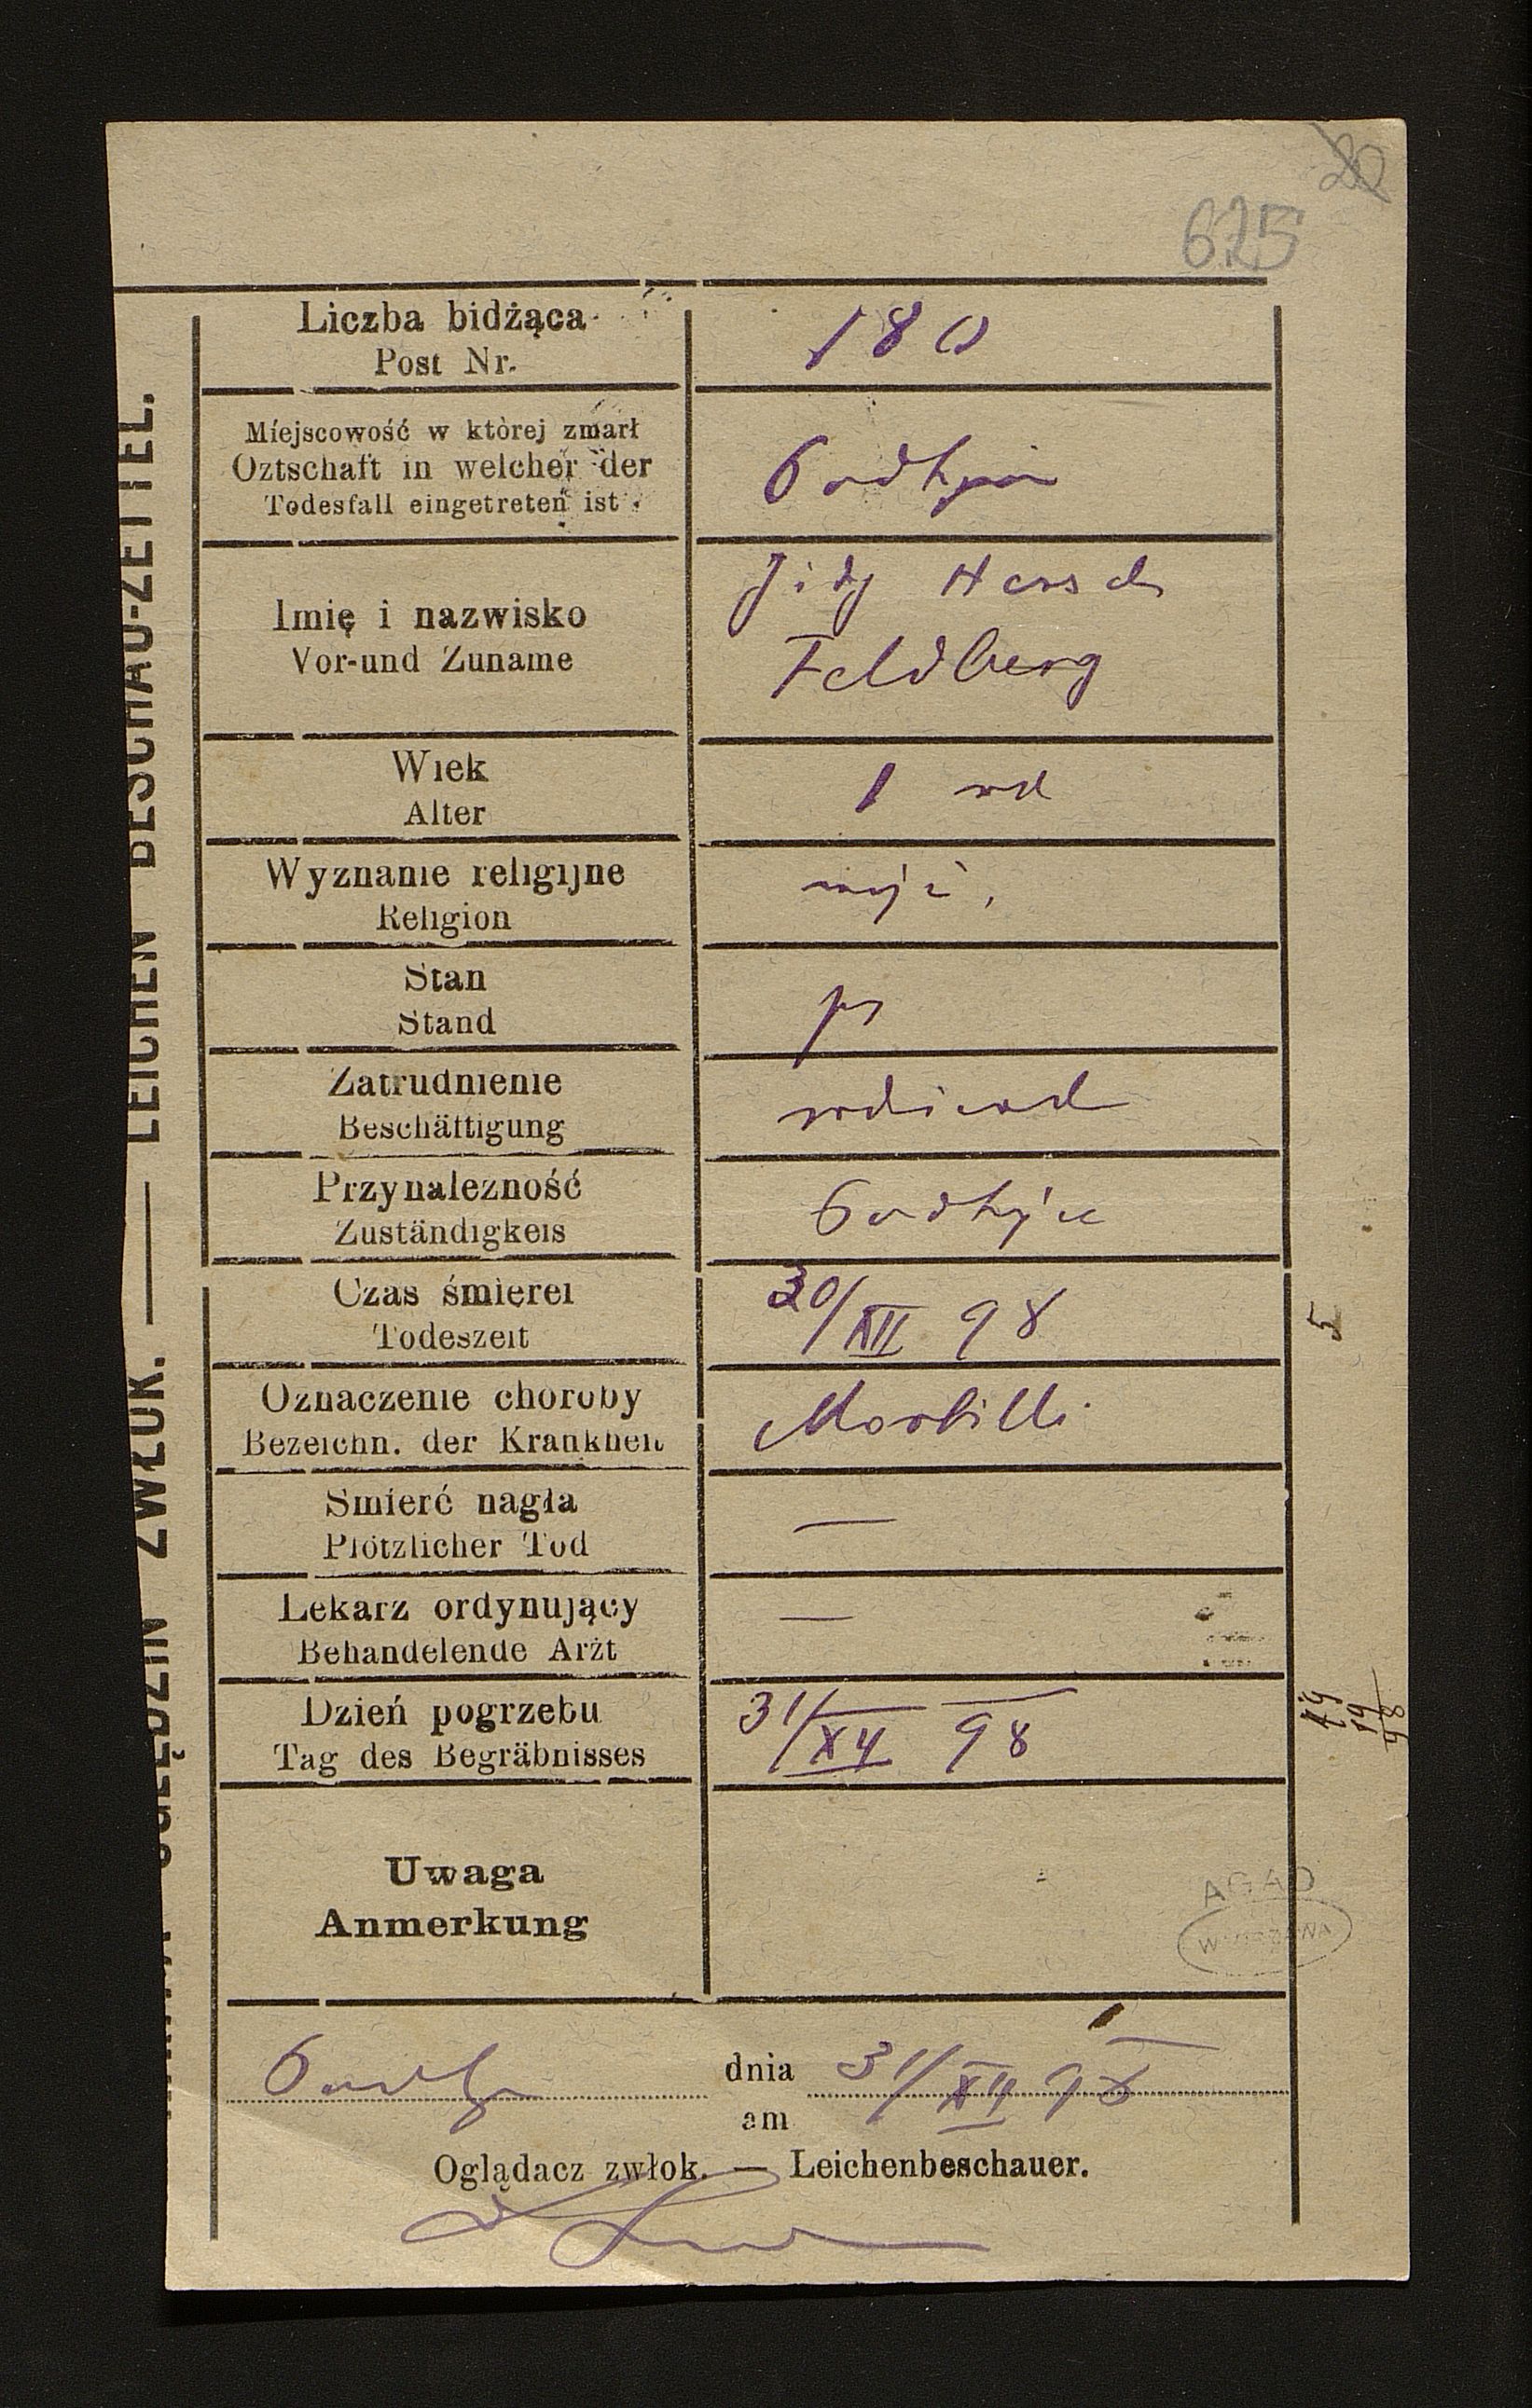 625
Liczba bidżąca
Post Nr.
180
Miejscowość w której zmarł
Oztschaft in welcher der
Todesfall eingetreten ist
Imię i nazwisko
Vor-und Zuname
Hersch
Feldberg
Wiek
Alter
1
Wyznanie religijne
Religion
mojż.
Stan
Stand
Zatrudnienie
Beschättigung
Przynalezność
Zuständigkeis
Czas śmierei
Todeszeit
30/XII 98
Oznaczenie choroby
Bezeichn. der Krankheit
Morbilli
Smierć nagła
Plötzlicher Tod
—
Lekarz ordynujący
Behandelende Arżt
—
Dzień pogrzebu
Tag des Begräbnisses
31/XII 98
Uwaga
Anmerkung
AGAD
WARSZAWA
dnia 31/XII 98
am
Oglądacz zwłok. — Leichenbeschauer.
ZWŁOK. — LEICHEN BESCHAU-ZETTEL.
5